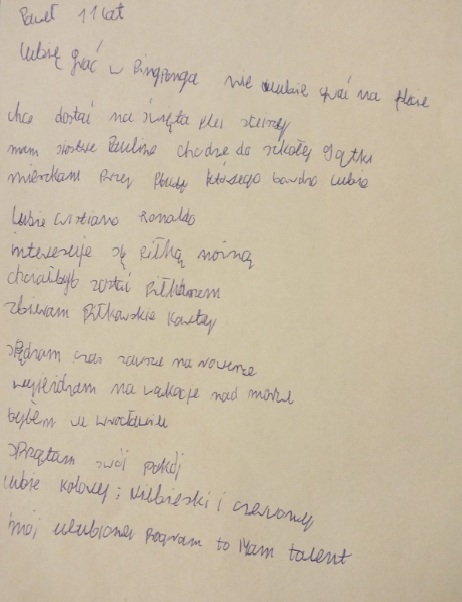 Paweł 11 lat
lubię grać w Pingponga nie lubię grać na flecie
chce dostać na święta plei steszyn
mam siostrę Paulinę chodzę do szkołej Sątki
mieszkam przy którego bardzo lubię
lubię Cristiano Ronaldo
interesuje się piłką nożną
chciałbyb zostać piłkarzem
zbieram piłkarskie kartey
spędzam czas zawsze na rowerze
wyjeżdżam na wakacje nad morze
byłem w wrocławiu
sprzątam swój pokój
lubię kolorey; niebieski i czerwoney
mój ulubioney program to Mam talent